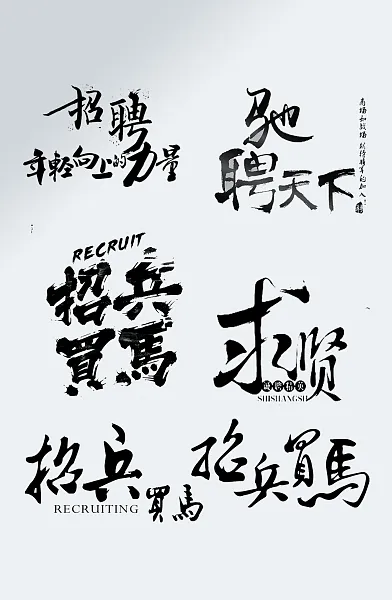 招聘
年輕向上的力量
驰
聘天下
商场如战场
RECRUIT
招兵
買馬
求贤
诚聘精英
SHISHANGSH
招兵
買馬
RECRUITING
招兵買馬